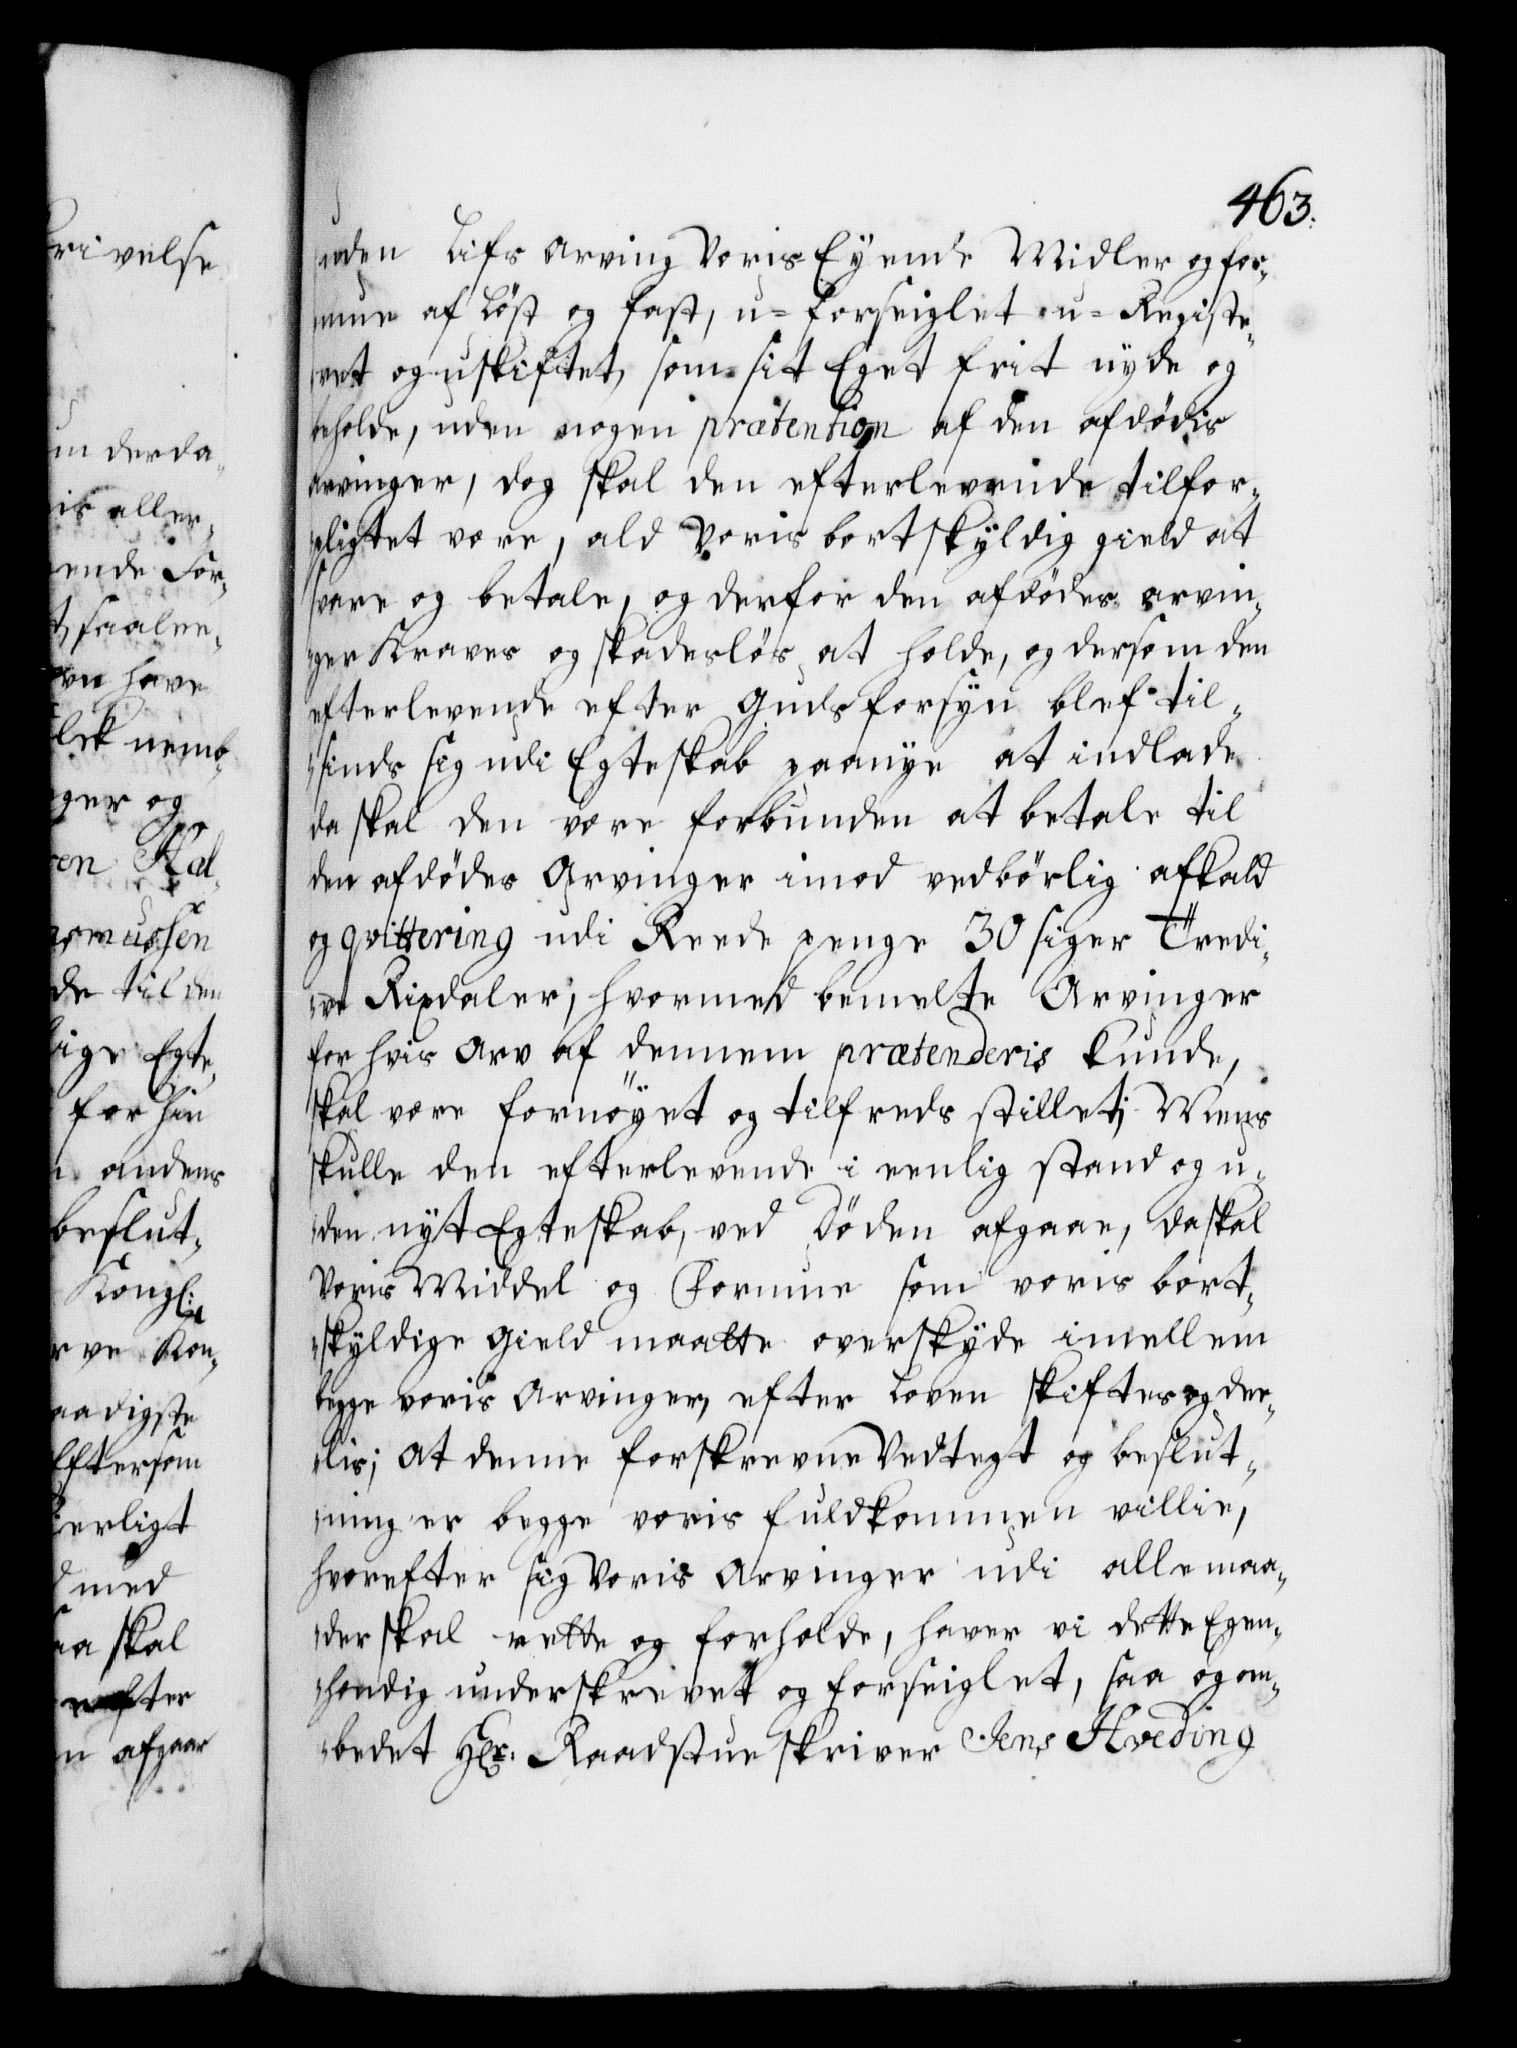 463.
uden Lifs Arving Voris Eyende Midler og for-
mue af Løst og fast, u=forseiglet u=Registe-
ret og uskiftet, som sit Eget frit nyde og
beholde, uden nogen prætention af den afdødis
arvinger, dog skal den efterlevende tilfor-
pligtet være, ald Voris bortskyldig gield at
svare og betale, og derfor den afdødes arvin-
ger Kraves og skadesløs at holde, og dersom den
efterlevende efter Guds forsyn blef til-
sinds sig udi Egteskab paanye at indlade
da skal den være forbunden at betale til
den afdødes Arvinger imod vedbørlig afkald
og qvittering udi Reede penge 30 siger Tredi-
ve Rixdaler, hvormed bemelte Arvinger
for hvis Arv af dennem prætenderis kunde,
skal være fornøyet og tilfreds stillet; Mens
skulle den efterlevende i eenlig stand og u-
den nyt Egteskab, ved Døden afgaae, da skal
Voris Middel og Formue som voris bort-
skyldige Gield maatte overskyde imellem
begge voris Arvinger, efter Loven skiftes og dee-
lis; At denne forskrevne Vedtegt og beslut-
ning er begge voris fuldkommen villie,
hvorefter sig Voris Arvinger udi alle maa-
der skal rette og forholde, haver vi dette Egen-
hendig underskrevet og forseiglet, saa og om-
bedet Hr. Raadstueskriver Jens Hveding
rivelse
derda-
is aller-
ende For-
saalee-
have
nemb-
ger og
asmussen
de til den
Egte-
for hin
andens
beslut-
Kongl:
aadigste
Eftersom
erligt
med
skal
efter
afgaar